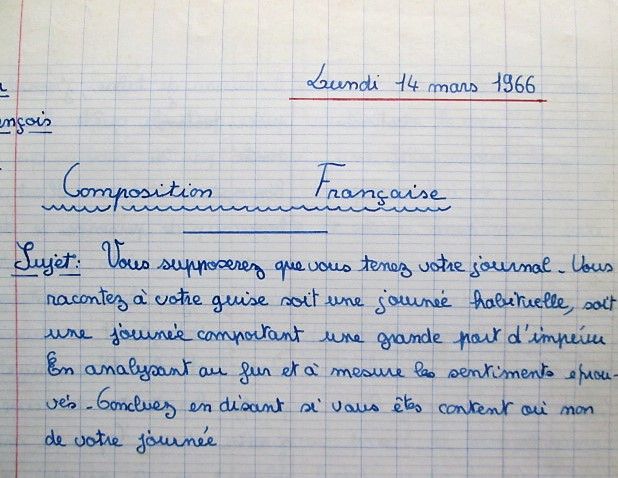 Lundi 14 mars 1966
ençois
Composition Française
Sujet: Vous supposerez que vous tenez votre journal. Vous
racontez à votre guise soit une journée habituelle, soit
une journée comportant une grande part d'imprévu
En analysant au fur et à mesure les sentiments éprou-
vés. Concluez en disant si vous êtes content ou non
de votre journée